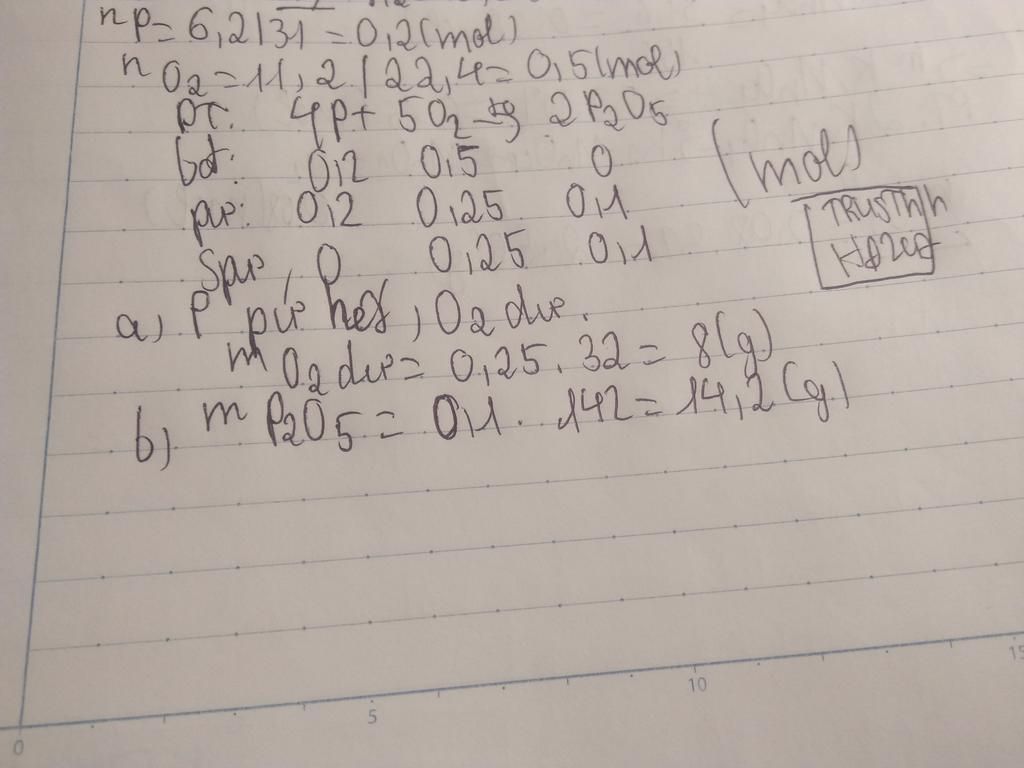 nP = 6,2/31 = 0,2 (mol)
nO2 = 11,2/22,4 = 0,5 (mol)
PT: 4P + 5O2 → 2P2O5
bđ: 0,2 0,5 0 (mol)
pư: 0,2 0,25 0,1
Spư, 0 0,25 0,1
a, P pư hết, O2 dư.
mO2 dư = 0,25 . 32 = 8 (g)
b) mP2O5 = 0,1 . 142 = 14,2 (g)
0 5 10 15